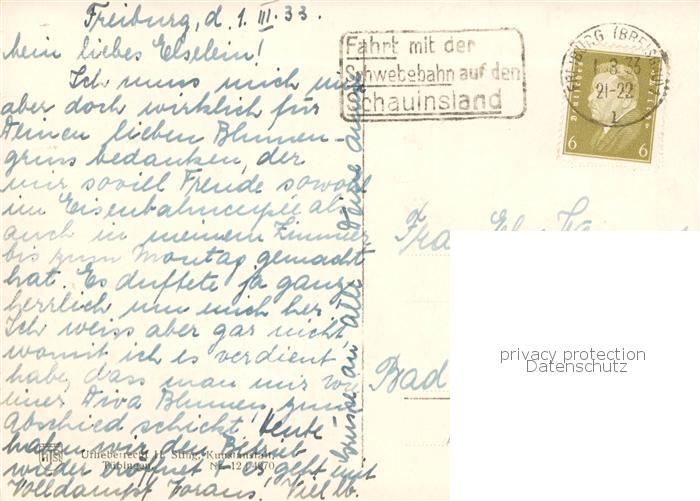 Freiburg, d. 1. III. 33.
Mein liebes Elselein!
Ich muss mich nun
aber doch wirklich für
Deinen lieben Blumen-
gruss bedanken, der
mir soviel Freude sowohl
im Eisenbahncoupé als
auch in meinem Zimmer
bis zum Montag gemacht
hat. Es duftete ja ganz
herrlich um mich her!
Ich weiss aber gar nicht
womit ich es verdient
habe, dass man mir wie
einer Diva Blumen zum
Abschied schickt! Heute
haben wir den Betrieb
wieder eröffnet + es geht mit
Volldampf voraus. Viel lb.
Grüsse an alle
Fahrt mit der
Schwebebahn auf den
Schauinsland
FREIBURG (BREISGAU)
1.3.33
21-22
1
6 6
Frau Else
Bad
privacy protection
Datenschutz
Urheberrecht H. Sting, Kunstanstalt,
Tübingen. Nr. 12 / 4970